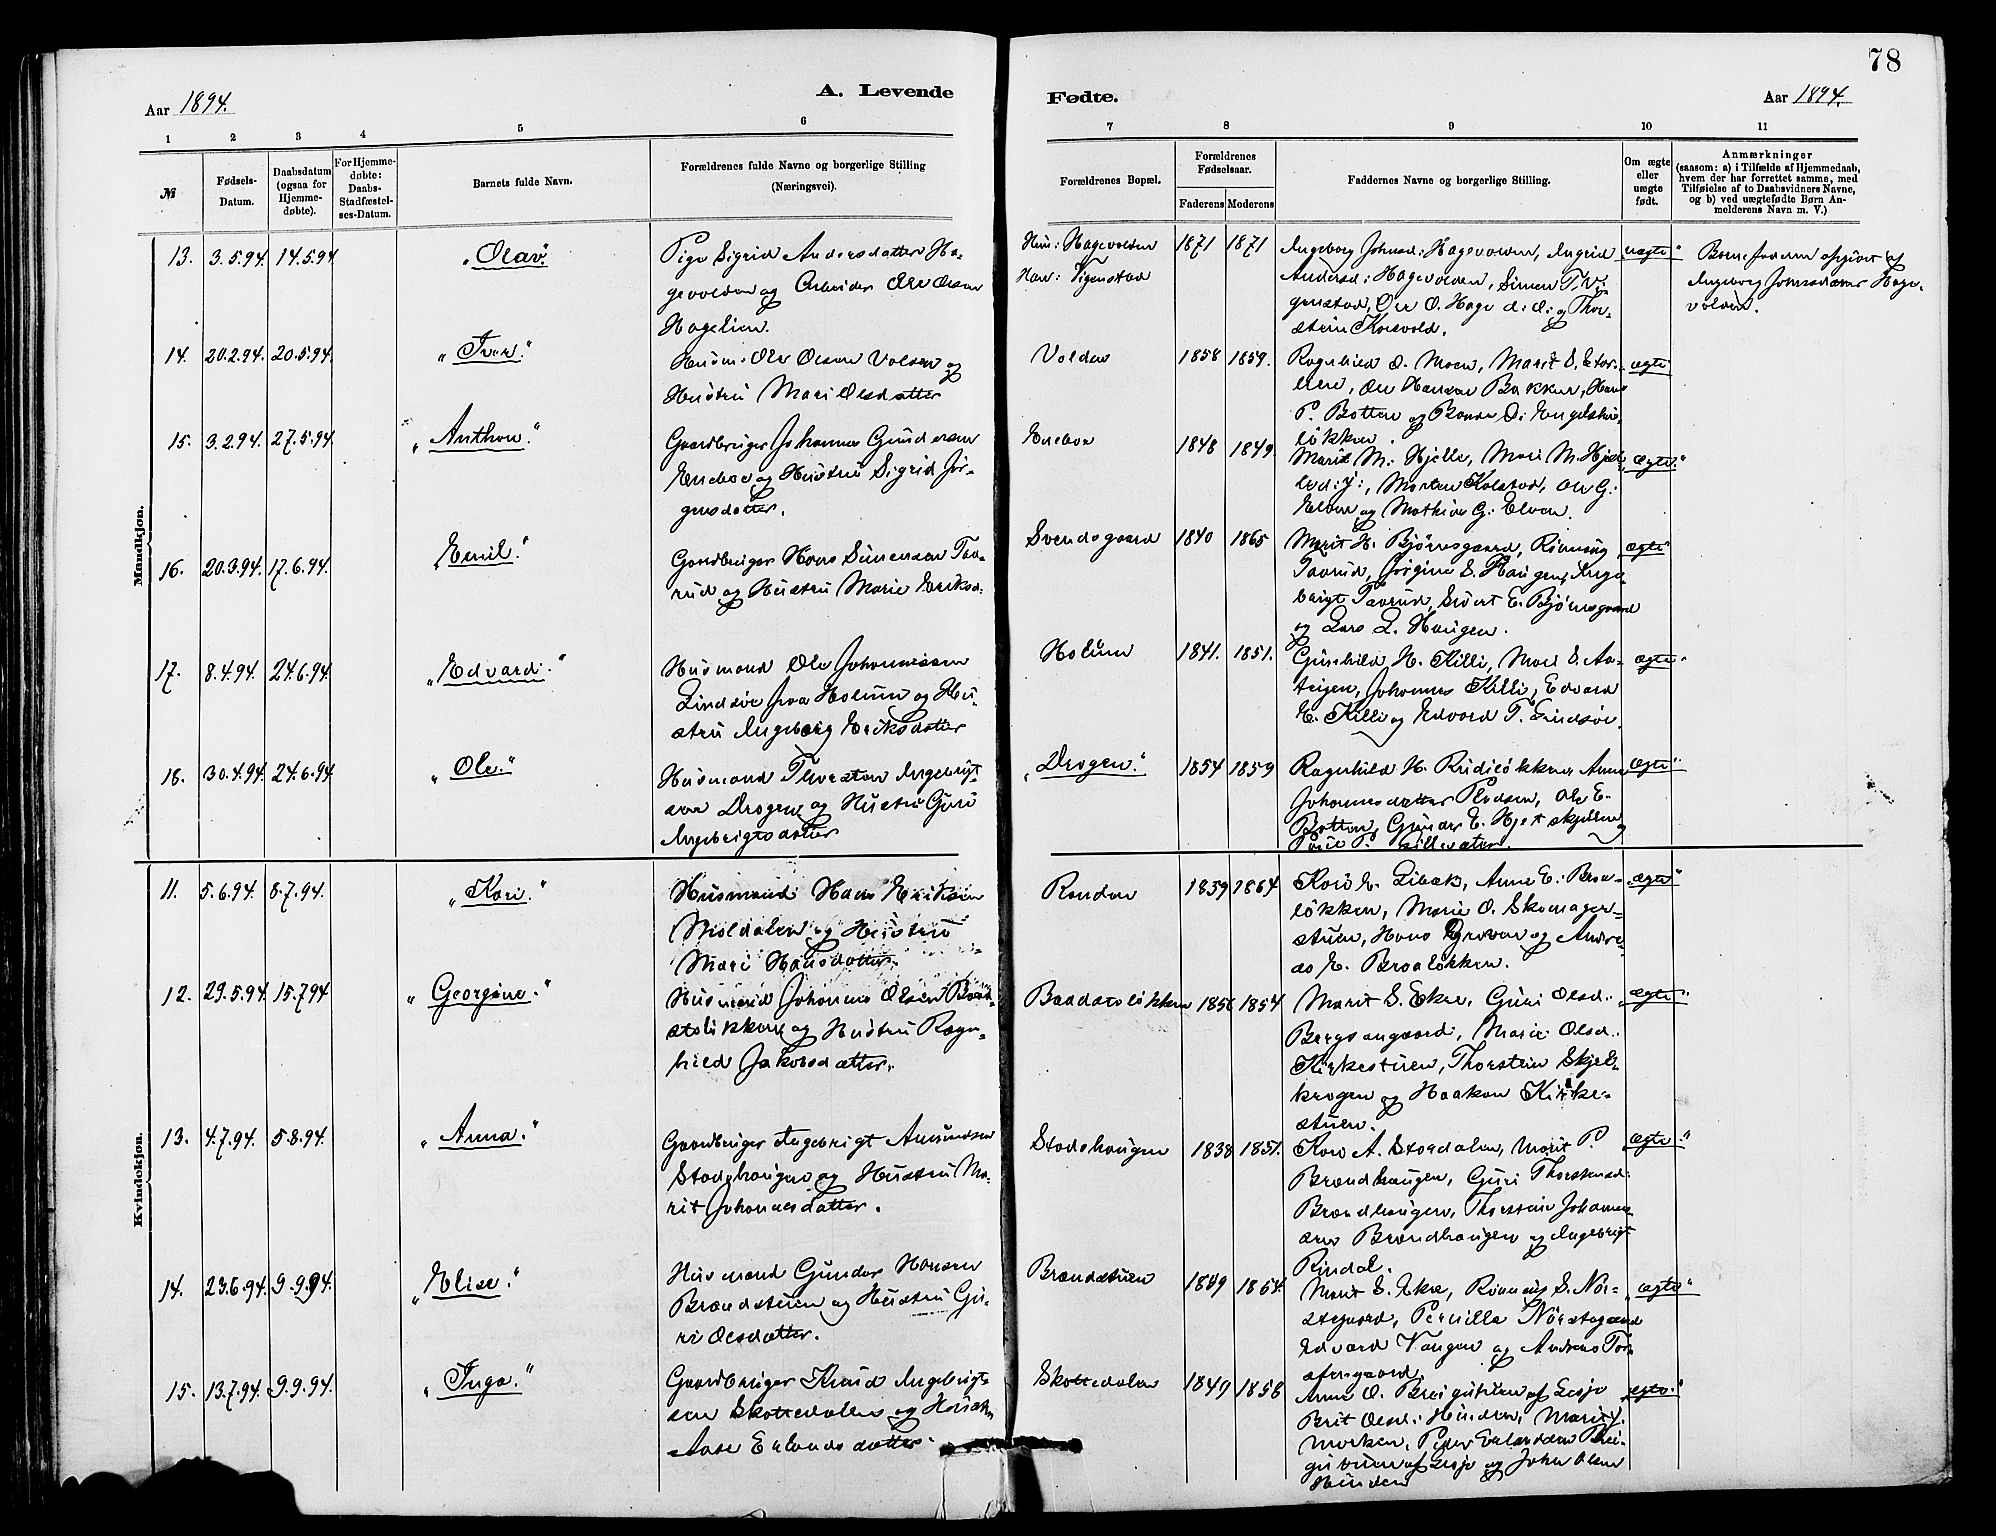 78
Aar 1894.
A. Levende
Fødte.
Aar 1894.
1 2 3 4 5 6 7 8 9 10 11
№
Fødsels-
Datum.
Daabsdatum
(ogsaa for
Hjemme-
døbte).
For Hjemme-
døbte:
Daabs-
Stadfæstel-
ses-Datum.
Barnets fulde Navn.
Forældrenes fulde Navne og borgerlige Stilling
(Næringsvei).
Forældrenes Bopæl.
Forældrenes
Fødselsaar.
Faderens Moderens
Faddernes Navne og borgerlige Stilling.
Om ægte
eller
uægte
født.
Anmærkninger
(saasom: a) i Tilfælde af Hjemmedaab,
hvem der har forrettet samme, med
Tilføielse af to Daabsvidners Navne,
og b) ved uægtefødte Børn An-
melderens Navn m. V.)
Mandkjøn.
13. 3.5.94. 14.5.94 "Olav."
Pige Sigrid Andersdatter Ha-
gevolden og Arbeider Ole Olsen
Hagelien.
Hun: Hagevolden 1871 1871
Han: Vigenstad
Ingeborg Johnsd: Hagevolden, Ingrid
Andersd: Hagevolden, Simen T. Vi-
genstad, Ole O. Hage d: æ: og Thor-
stein Korsvold.
uægte"
Barnefaderen opgivet af
Ingeborg Johnsdatter Hage-
volden.
14. 20.2.94. 20.5.94. "Iver."
Husm: Ole Olsen Volden og
Hustru Mari Olsdatter
Volden 1858 1859.
Ragnhild O. Moen, Marit S.
Ole Hansen Bakken, Hans
P. Botten og
løkken.
ægte
15. 3.2.94. 27.5.94. "Anthon."
Gaardbruger Johannes Gundersen
Eneboe og Hustru Sigrid Jør-
gensdatter.
Eneboe 1848 1849.
Marit M. Hjelle, Mari M. Hjel-
le d: y:, Morten Kolstad, Ole G:
Elven og Mathias G: Elven.
"ægte."
16. 20.3.94. 17.6.94. "Emil."
Gaardbruger Hans Simensen Tav-
rud og Hustru Marie Eriksd:
Svendsgaard 1840 1865
Marit H. Bjørnsgaard, Rønnaug
Tavrud, Jørgine S. Haugen, Inge-
brigt Tavrud, Sivert E. Bjørnsgaard
og Lars L. Haugen.
ægte"
17. 8.4.94. 24.6.94. "Edvard."
Husmand Ole Johannessen
Lindsøe fra Holum og Hu-
stru Ingeborg Eriksdatter
Holum 1841. 1851.
Gunhild H. Killi, Mari S. Aa-
teigen, Johannes Killi, Edvard
E. Killi og Edvard T. Lindsøe.
ægte"
18. 30.4.94. 24.6.94. "Ole."
Husmand Thorsten Ingebrigt-
sen Drogen og Hustru Guri
Ingebrigtsdatter
"Drogen." 1854 1859
Ragnhild H. Rudiløkken, Anne
Johannesdatter Plodsen, Ole E.
Botten, Gunder E. Hjeltskjellen og
ægte"
Kvindekjøn.
11. 5.6.94. 8.7.94. "Kari."
Husmand Hans Eriksen
Moldalen og Hustru
Mari Hansdatter.
Randen 1839 1864
Kari E. Libak, Anne E. Braa-
løkken, Marie O. Skomager-
stuen, Hans Byrvan og Andre-
as E. Braaløkken.
"ægte"
12. 29.5.94. 15.7.94 "Georgine."
Husmand Johannes Olsen Baad-
støløkken og Hustru Ragn-
hild Jakobsdatter.
Baadstøløkken 1856 1854
Marit S. Ekre, Guri Olsd:
Bergsangaard, Marie Olsd:
Kirkestuen, Thorstein Skjel-
krogen og Haakon Kirke-
stuen.
"ægte"
13. 4.7.94. 5.8.94. "Anna."
Gaardbruger Ingebrigt Amundsen
Stadshaugen og Hustru Ma-
rit Johannesdatter.
Stadshaugen 1838 1851.
Kari A. Stordalen, Marit P.
Brændhaugen, Guri Thorstensd:
Brændhaugen, Thorstein Johannes-
sen Brændhaugen og Ingebrigt
Rindal.
ægte."
14. 23.6.94. 9.9.94. "Elise."
Husmand Gunder Hansen
Brændstuen og Hustru Gu-
ri Olsdatter.
Brændstuen 1849 1864.
Marit S. Ekre, Rønnaug S. Nor-
stegaard, Pernille Nørstegaard
Edvard Vangen og Andreas Tof-
stegaard.
"ægte"
15. 13.7.94. 9.9.94. "Inga."
Gaardbruger Knud Ingebrigt-
sen Skottedalen og Hustru
Aase Erlandsdatter.
Skottedalen 1849 1856
Anne O. Breigutuen af Lesje
Brit Olsd: Hunden, Marit J.
Morken, Peder Erlandsen Brei-
gutuen af Lesje og John Olsen
Hunden
ægte."